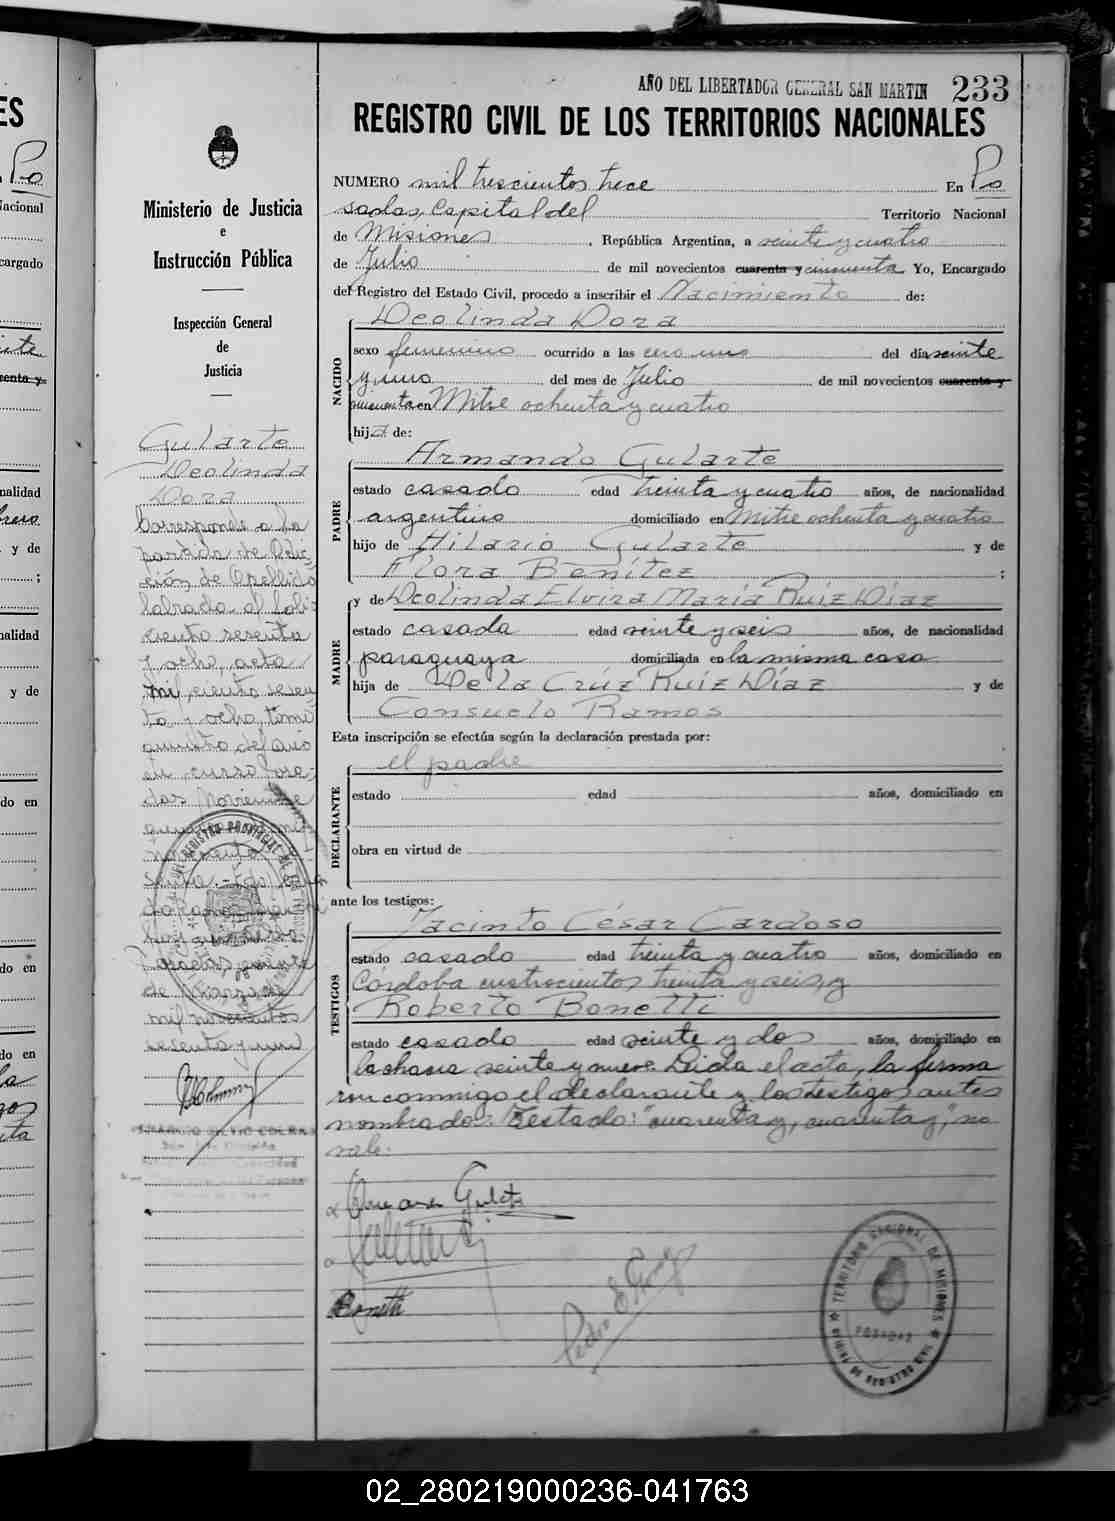 AÑO DEL LIBERTADOR GENERAL SAN MARTIN 233
REGISTRO CIVIL DE LOS TERRITORIOS NACIONALES
NUMERO mil trescientos trece En Po
sadas, Capital del Territorio Nacional
de Misiones, República Argentina, a veinte y cuatro
de Julio de mil novecientos cuarenta y cincuenta Yo, Encargado
del Registro del Estado Civil, procedo a inscribir el Nacimiento de:
Deolinda Dora
NACIDO
sexo femenino ocurrido a las cero una del día veinte
y uno del mes de Julio de mil novecientos cuarenta y
cincuenta en Mitre ochenta y cuatro
hija de:
Armando Gularte
PADRE
estado casado edad treinta y cuatro años, de nacionalidad
argentino domiciliado en Mitre ochenta y cuatro
hijo de Hilario Gularte y de
Flora Benítez ;
y de Deolinda Elvira María Ruíz Díaz
MADRE
estado casada edad veinte y seis años, de nacionalidad
paraguaya domiciliada en la misma casa
hija de De la Crúz Ruíz Díaz y de
Consuelo Ramos
Esta inscripción se efectúa según la declaración prestada por:
el padre
DECLARANTE
estado edad años, domiciliado en
obra en virtud de
ante los testigos:
Jacinto César Cardoso
TESTIGOS
estado casado edad treinta y cuatro años, domiciliado en
Córdoba cuatrocientos treinta y seis, y
Roberto Bonetti
estado casado edad veinte y dos años, domiciliado en
la chacra veinte y nueve. Leida el acta, la firma
con conmigo el declarante y los testigos antes
nombrados. Testado: "cuarenta y, cuarenta y", no
vale.
Bonetti
Pedro E.
TERRITORIO NACIONAL DE MISIONES
POSADAS
OFICINA DE REGISTRO CIVIL
Ministerio de Justicia
e
Instrucción Pública
Inspección General
de
Justicia
Gularte
Deolinda
Dora
Corresponde a la
partida de Adic-
ción de Apellido
labrada al folio
ciento sesenta
y ocho, acta
mil ciento sesen
ta y ocho, tomo
del año
en curso Posa-
das Noviembre
de Marzo de
mil novecientos
sesenta y uno
REGISTRO PROVINCIAL DE LAS PERSONAS
ES
Po
Nacional
cargado
nalidad
y de
;
nalidad
y de
do en
do en
do en
02_280219000236-041763